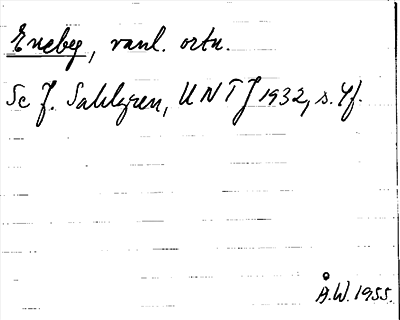 Eneby, vanl. ortn.
Se J. Sahlgren, UNTJ 1932, s. 4f.
Å.W. 1955.